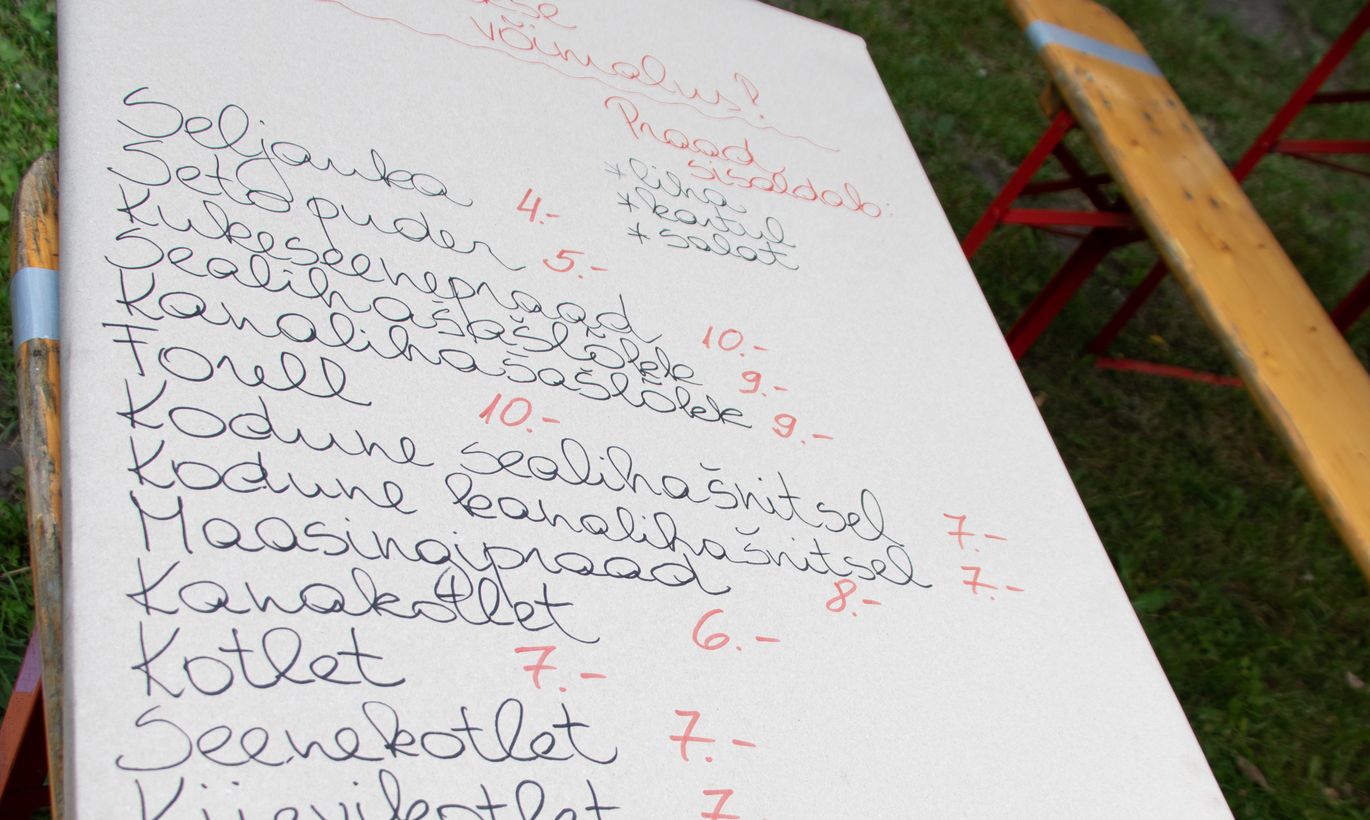 võimalus!
Praad
sisaldab:
* liha
* kartul
* salat
Seljanka 4.-
Seto puder 5.-
Kukeseenepraad 10.-
Sealihašašlõkk 9.-
Kanalihašašlõkk 9.-
Forell 10.-
Kodune sealihašnitsel 7.-
Kodune kanalihašnitsel 7.-
Maasingipraad 8.-
Kanakotlet 6.-
Kotlet 7.-
Seenekotlet 7.-
Kiievikotlet 7